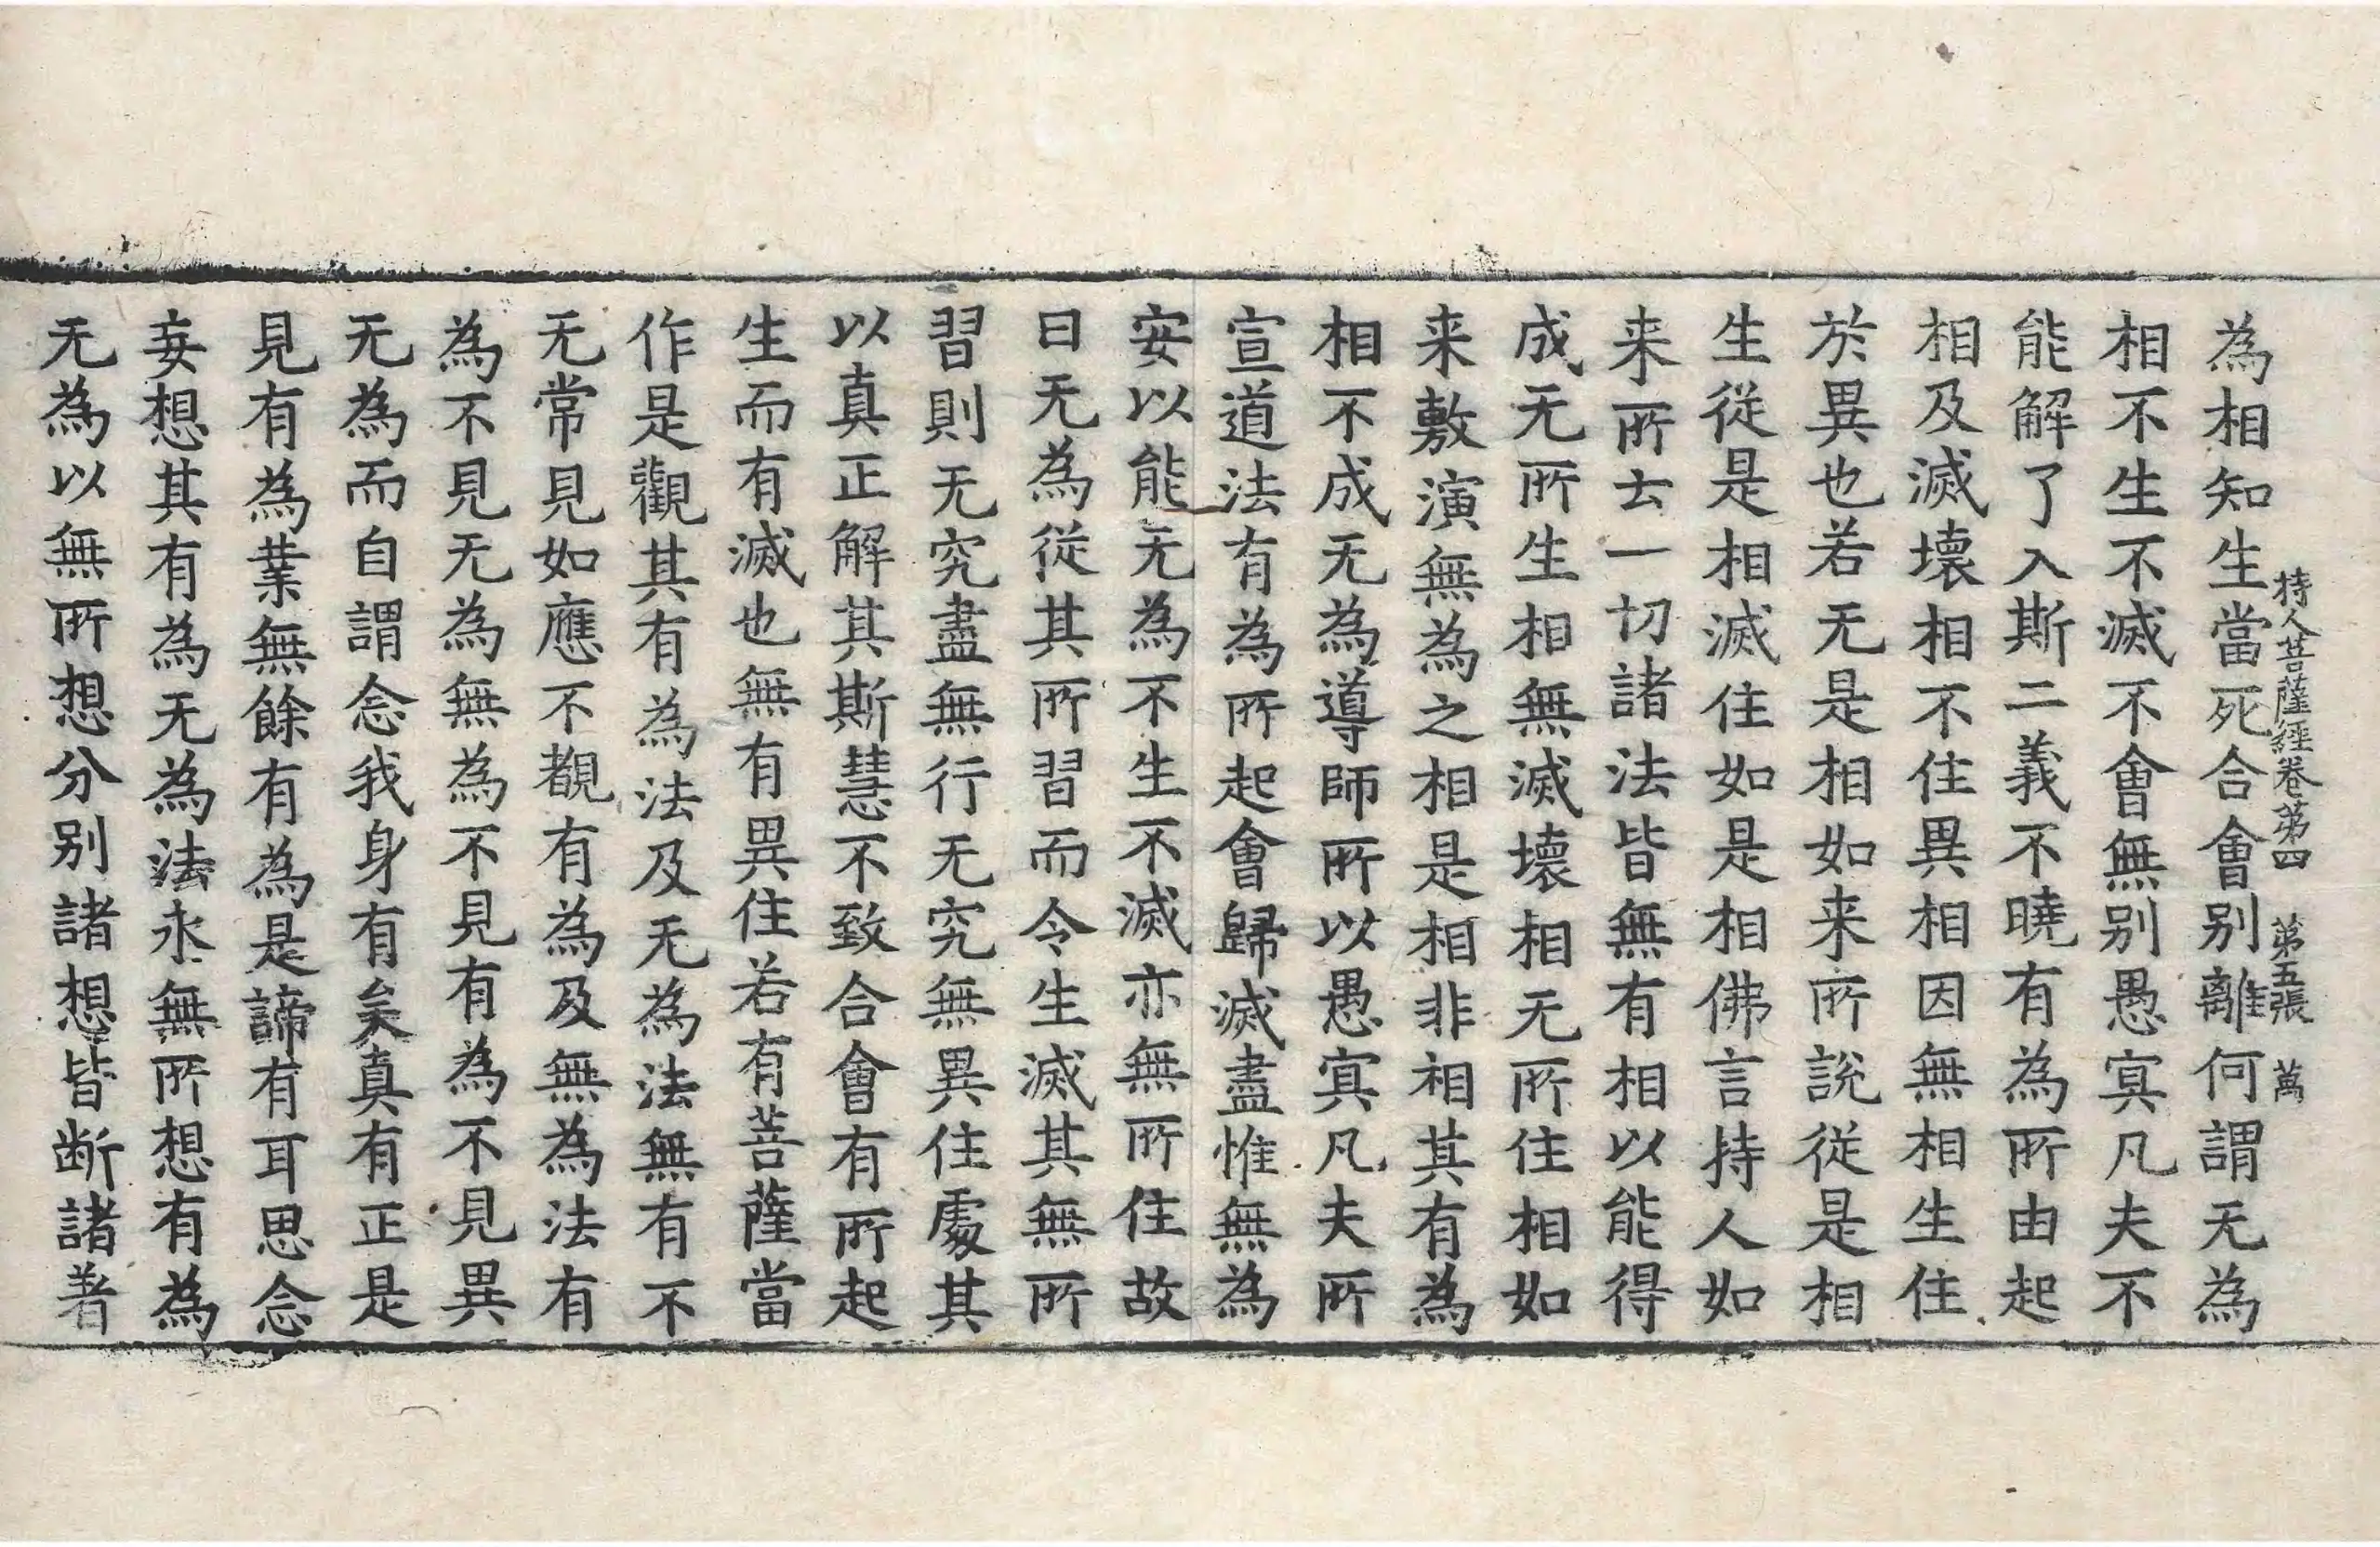 持人菩薩經卷第四 第五張 萬
為相知生當死合會别離何謂无為
相不生不滅不會無别愚冥凡夫不
能解了入斯二義不曉有為所由起
相及滅壞相不住異相因無相生住
於異也若无是相如来所說從是相
生從是相滅住如是相佛言持人如
来所去一切諸法皆無有相以能得
成无所生相無滅壞相无所住相如
来敷演無為之相是相非相其有為
相不成无為導師所以愚冥凡夫所
宣道法有為所起會歸滅盡惟無為
安以能无為不生不滅亦無所住故
曰无為從其所習而令生滅其無所
習則无究盡無行无究無異住處其
以真正解其斯慧不致合會有所起
生而有滅也無有異住若有菩薩當
作是觀其有為法及无為法無有不
无常見如應不覩有為及無為法有
為不見无為無為不見有為不見異
无為而自謂念我身有矣真有正是
見有為業無餘有為是諦有耳思念
妄想其有為无為法永無所想有為
无為以無所想分别諸想皆断諸著